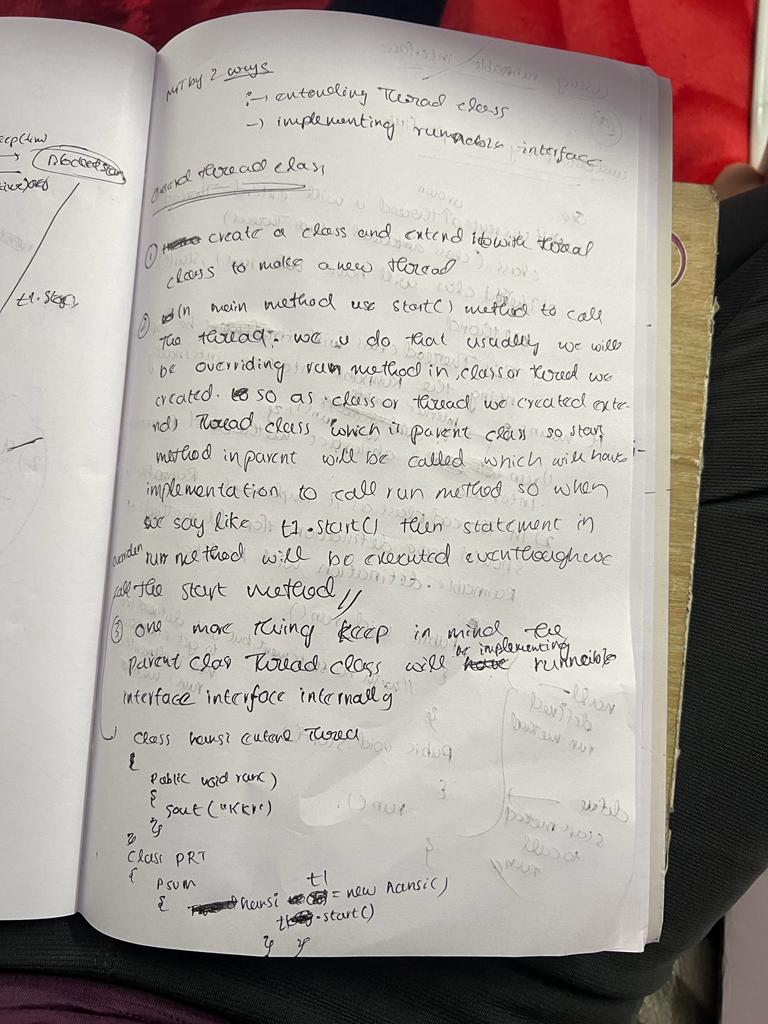 MT by 2 ways
:→ extending Thread class
→ implementing runnable interface
extend thread class
① create a class and extend it with thread
class to make a new thread
② In main method use start() method to call
The thread. we u do that usually we will
be overriding run method in class or thred we
created. so as class or thread we created exte-
nds Thread class which is parent class so start
method in parent will be called which will have
implementation to call run method so when
we say like t1.start() then statement in
overriden run method will be executed eventhough we
call the start method //
③ one more thing keep in mind the
parent class Thread class will be implementing runnable
interface interface internally
class hansi extend Thred
{
public void run()
{
sout("KKr")
}
}
class PRT
{
PSVM
{ hansi t1 = new hansi()
t1.start()
} }
eep(time)
Blocked state
t1.stop()